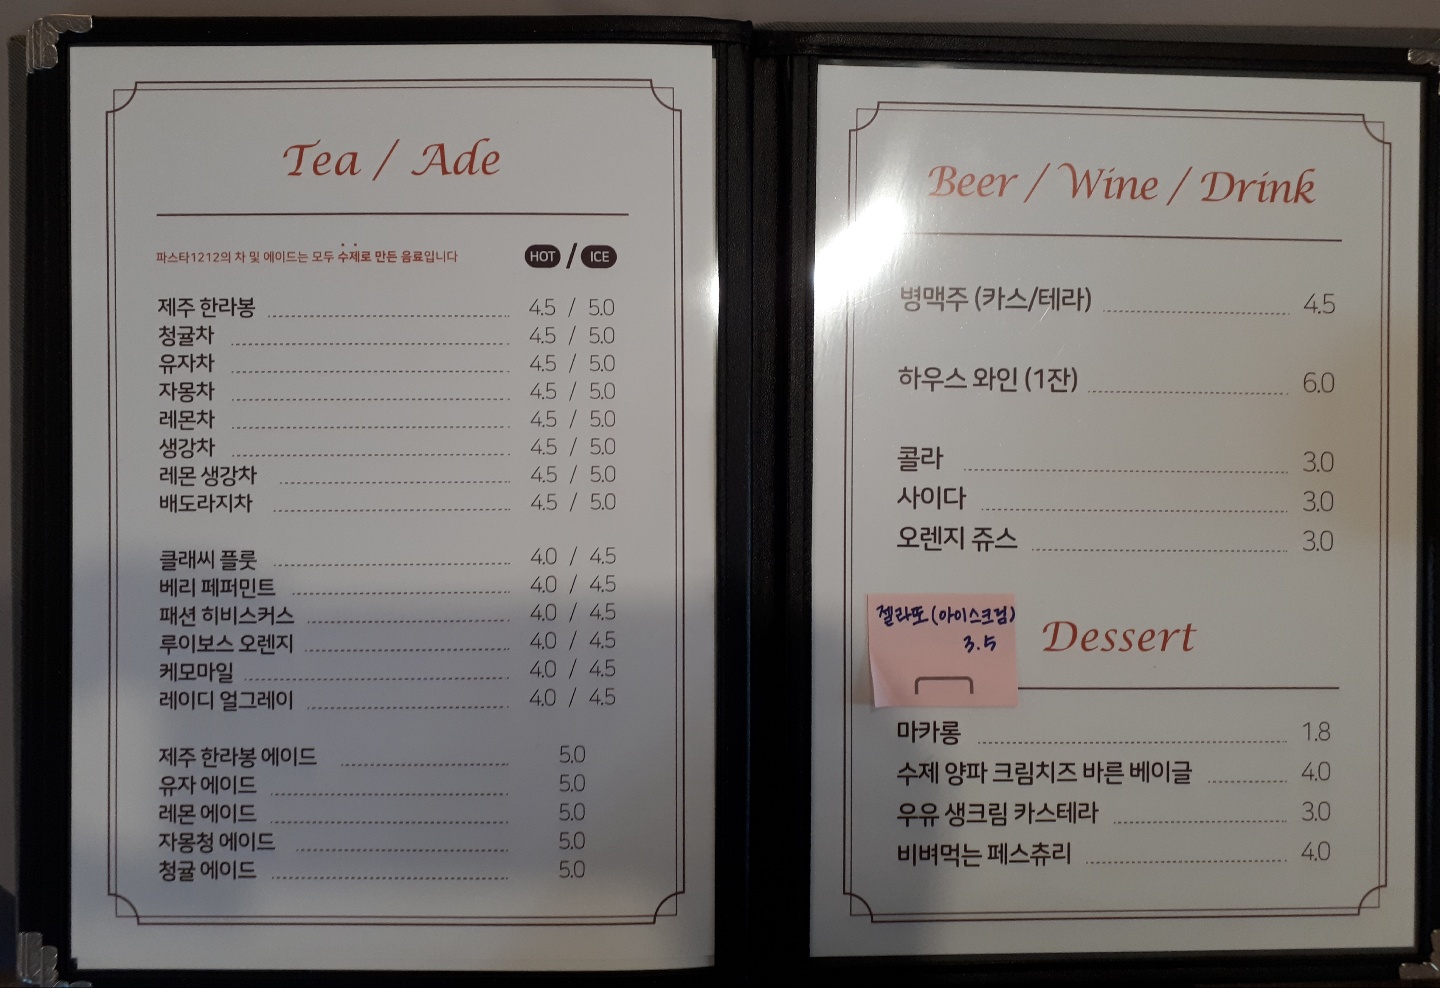 Tea / Ade
파스타1212의 차 및 에이드는 모두 수제로 만든 음료입니다 HOT / ICE
제주 한라봉 4.5 / 5.0
청귤차 4.5 / 5.0
유자차 4.5 / 5.0
자몽차 4.5 / 5.0
레몬차 4.5 / 5.0
생강차 4.5 / 5.0
레몬 생강차 4.5 / 5.0
배도라지차 4.5 / 5.0
클래씨 플룻 4.0 / 4.5
베리 페퍼민트 4.0 / 4.5
패션 히비스커스 4.0 / 4.5
루이보스 오렌지 4.0 / 4.5
케모마일 4.0 / 4.5
레이디 얼그레이 4.0 / 4.5
제주 한라봉 에이드 5.0
유자 에이드 5.0
레몬 에이드 5.0
자몽청 에이드 5.0
청귤 에이드 5.0
Beer / Wine / Drink
병맥주 (카스/테라) 4.5
하우스 와인 (1잔) 6.0
콜라 3.0
사이다 3.0
오렌지 쥬스 3.0
젤라또 (아이스크림)
3.5
Dessert
마카롱 1.8
수제 양파 크림치즈 바른 베이글 4.0
우유 생크림 카스테라 3.0
비벼먹는 페스츄리 4.0